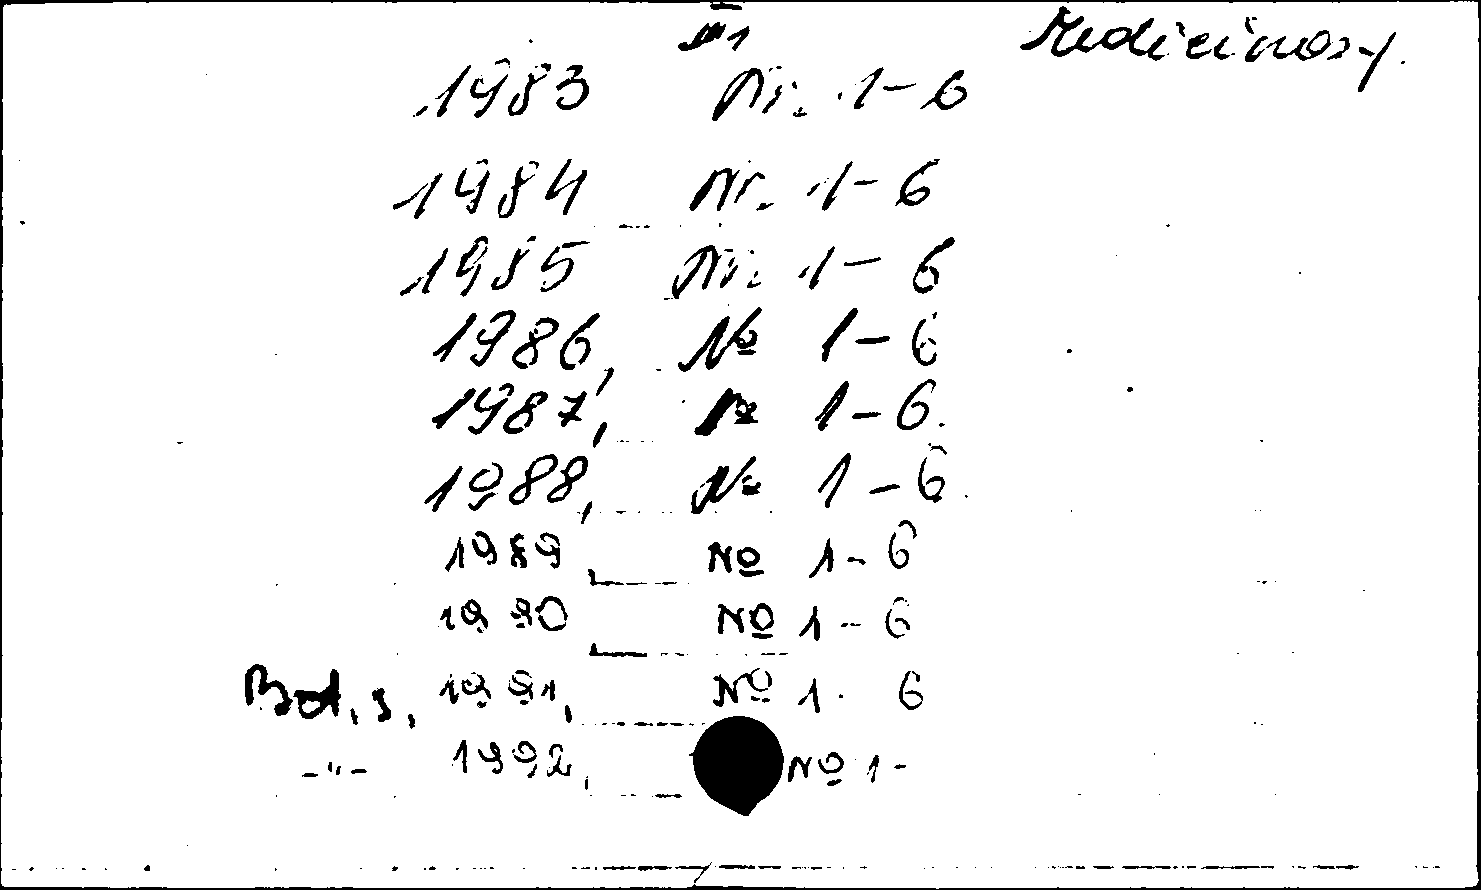 1983 Nr. 1-6
1984 Nr. 1-6
1985 Nr. 1-6
1986, № 1-6
1987, № 1-6.
1988, № 1-6
1989 № 1-6
1990 № 1-6
Bot. s, 1991, № 1- 6
-"- 1992, № 1-